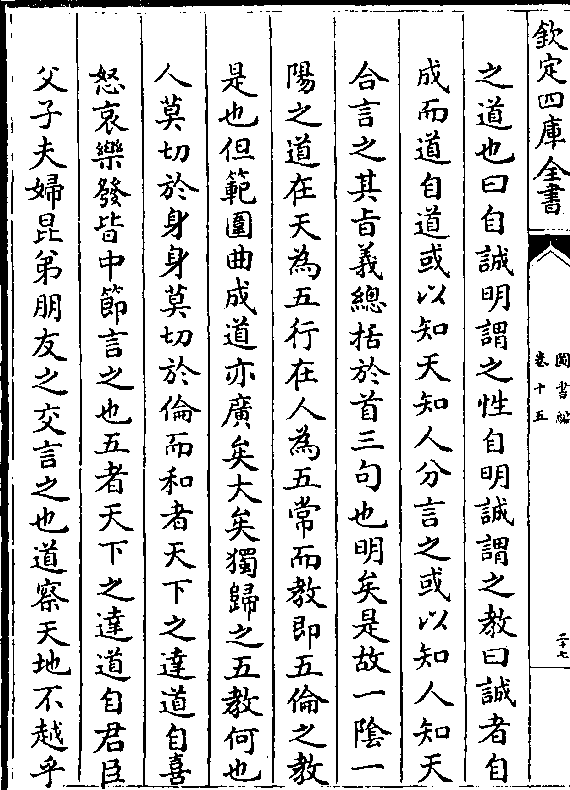 欽定四庫全書
圖書編
卷十五
二十七
之道也曰自誠明謂之性自明誠謂之教曰誠者自
成而道自道或以知天知人分言之或以知人知天
合言之其㫖義總括於首三句也明矣是故一陰一
陽之道在天為五行在人為五常而教即五倫之教
是也但範圍曲成道亦廣矣大矣獨歸之五教何也
人莫切於身身莫切於倫而和者天下之達道自喜
怒哀樂發皆中節言之也五者天下之達道自君臣
父子夫婦昆弟朋友之交言之也道察天地不越乎